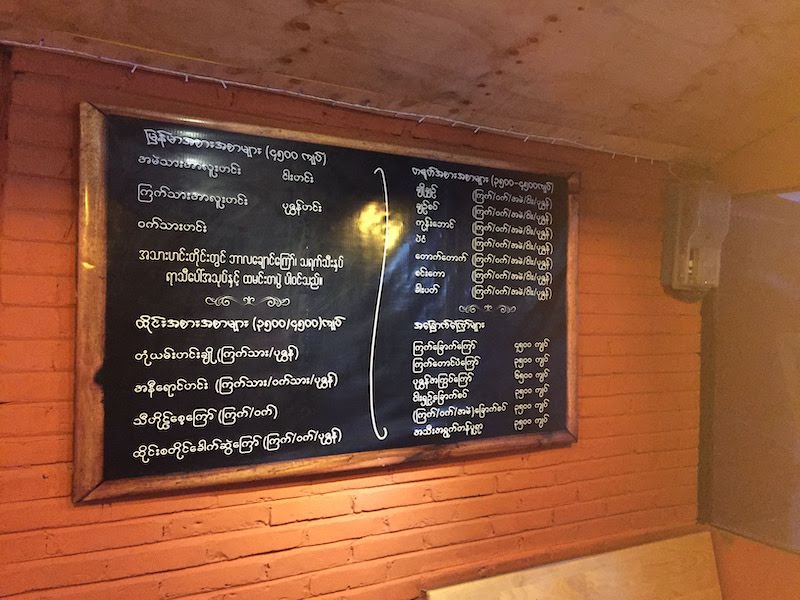 မြန်မာအစားအစာများ (၄၅၀၀ ကျပ်)
အမဲသားအာလူးဟင်း ငါးဟင်း
ကြက်သားအာလူးဟင်း ပုစွန်ဟင်း
ဝက်သားဟင်း
အသားဟင်းတိုင်းတွင် ဘာလချောင်ကြော်၊ သရက်သီးနှပ်
ရာသီပေါ်အသုပ်နှင့် ထမင်းတပွဲ ပါဝင်သည်။
ထိုင်းအစားအစာများ (၃၅၀၀/၄၅၀၀)ကျပ်
တုံယမ်းဟင်းချို (ကြက်သား/ပုစွန်)
အနီရောင်ဟင်း (ကြက်သား/ဝက်သား/ပုစွန်)
သီဟိုဠ်စေ့ကြော် (ကြက်/ဝက်)
ထိုင်းစတိုင်ခေါက်ဆွဲကြော် (ကြက်/ဝက်/ပုစွန်)
တရုတ်အစားအစာများ (၃၅၀၀-၄၅၀၀ကျပ်)
ချိုချဉ် (ကြက်/ဝက်/အမဲ/ငါး/ပုစွန်)
ချဉ်စပ် (ကြက်/ဝက်/အမဲ/ငါး/ပုစွန်)
ကုန်းဘောင် (ကြက်/ဝက်/အမဲ/ငါး/ပုစွန်)
ပဲငံ (ကြက်/ဝက်/အမဲ/ငါး/ပုစွန်)
တောက်တောက် (ကြက်/ဝက်/အမဲ/ငါး/ပုစွန်)
စင်းကော (ကြက်/ဝက်/အမဲ/ငါး/ပုစွန်)
ခါးပတ် (ကြက်/ဝက်/အမဲ/ငါး/ပုစွန်)
အခြောက်ကြော်များ
ကြက်ခြောက်ကြော် ၄၅၀၀ ကျပ်
ကြက်တောင်ပံကြော် ၃၅၀၀ ကျပ်
ပုစွန်အကြွပ်ကြော် ၆၅၀၀ ကျပ်
ငါးရှဉ့်ခြောက်စပ် ၃၅၀၀ ကျပ်
(ကြက်/ဝက်/အမဲ)ခြောက်စပ် ၃၅၀၀ ကျပ်
အသီးအရွက်တန်ပူရာ ၃၅၀၀ ကျပ်